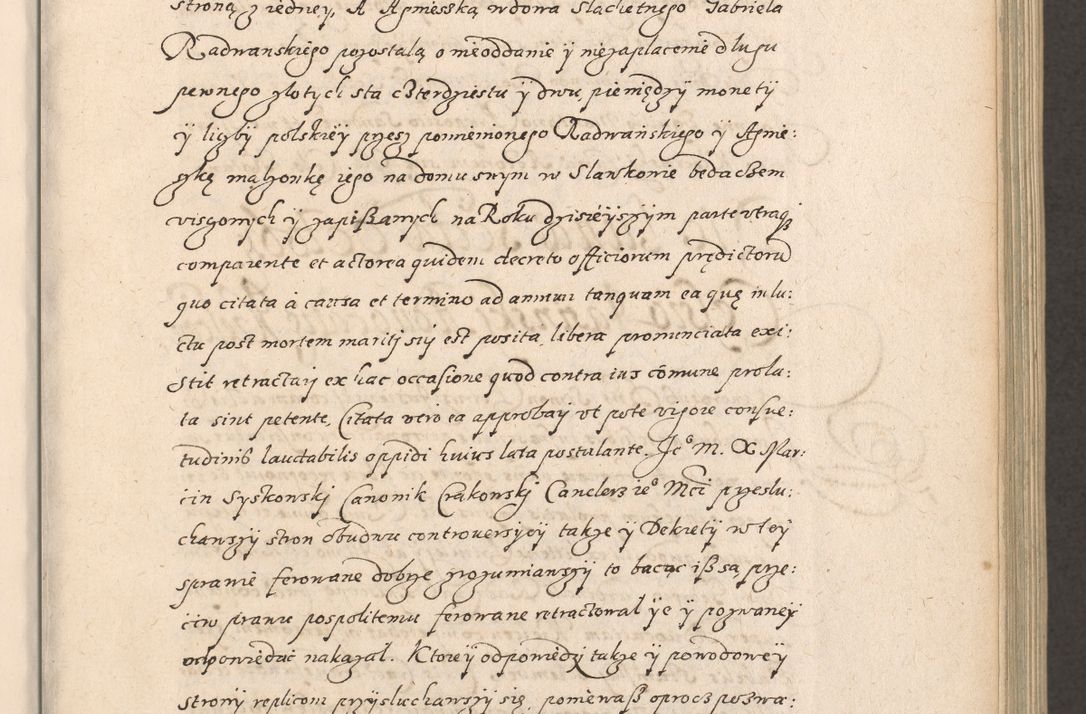 stroną z iedney, A Agniesską wdową Slachetnego Gabriela
Radwanskiego pozostalą o nieoddanie ÿ niezaplacenie dlugu
pewnego zlotych sta czterdziestu ÿ dwu, pieniędzÿ monetÿ
ÿ liczbÿ polskieÿ przesz pomienionego Radwańskiego ÿ Agnie:
szkę małżonkę iego na domu swym w Slawkowie bedaczem
visgonych ÿ zapißanych na Roku dzisieÿszÿm parte utraq
comparente et actorea quidem decreto officiorum prędictorũ
quo citata à causa et termino ad annum tanquam ea quę in lu:
ctu post mortem maritj sij est posita, libera pronunciata exi:
stit retractarj ex hac occasione quod contra ius cõmune prola:
ta sint petente, Citata vero ea approbarj vt pote vigore consue:
tudinis laudabilis oppidi huius lata postulante. Je° M. X Mar:
cin Syskowskj Canonik Crakowskj Canclerz ie° Mci przeslu:
chawszÿ stron obudwu controversÿÿ także ÿ Dekretÿ w teÿ
sprawie ferowane dobrze zrozumiawszÿ to bacząc iß są prze:
ciw prawu pospolitemu ferowane retractował ÿe ÿ pozwaneÿ
odpowiedać nakazał. Ktoreÿ odpowiedzi także ÿ powodoweÿ
stronÿ replicom przÿsluchawszÿ się, ponieważ oprocz pozwa: